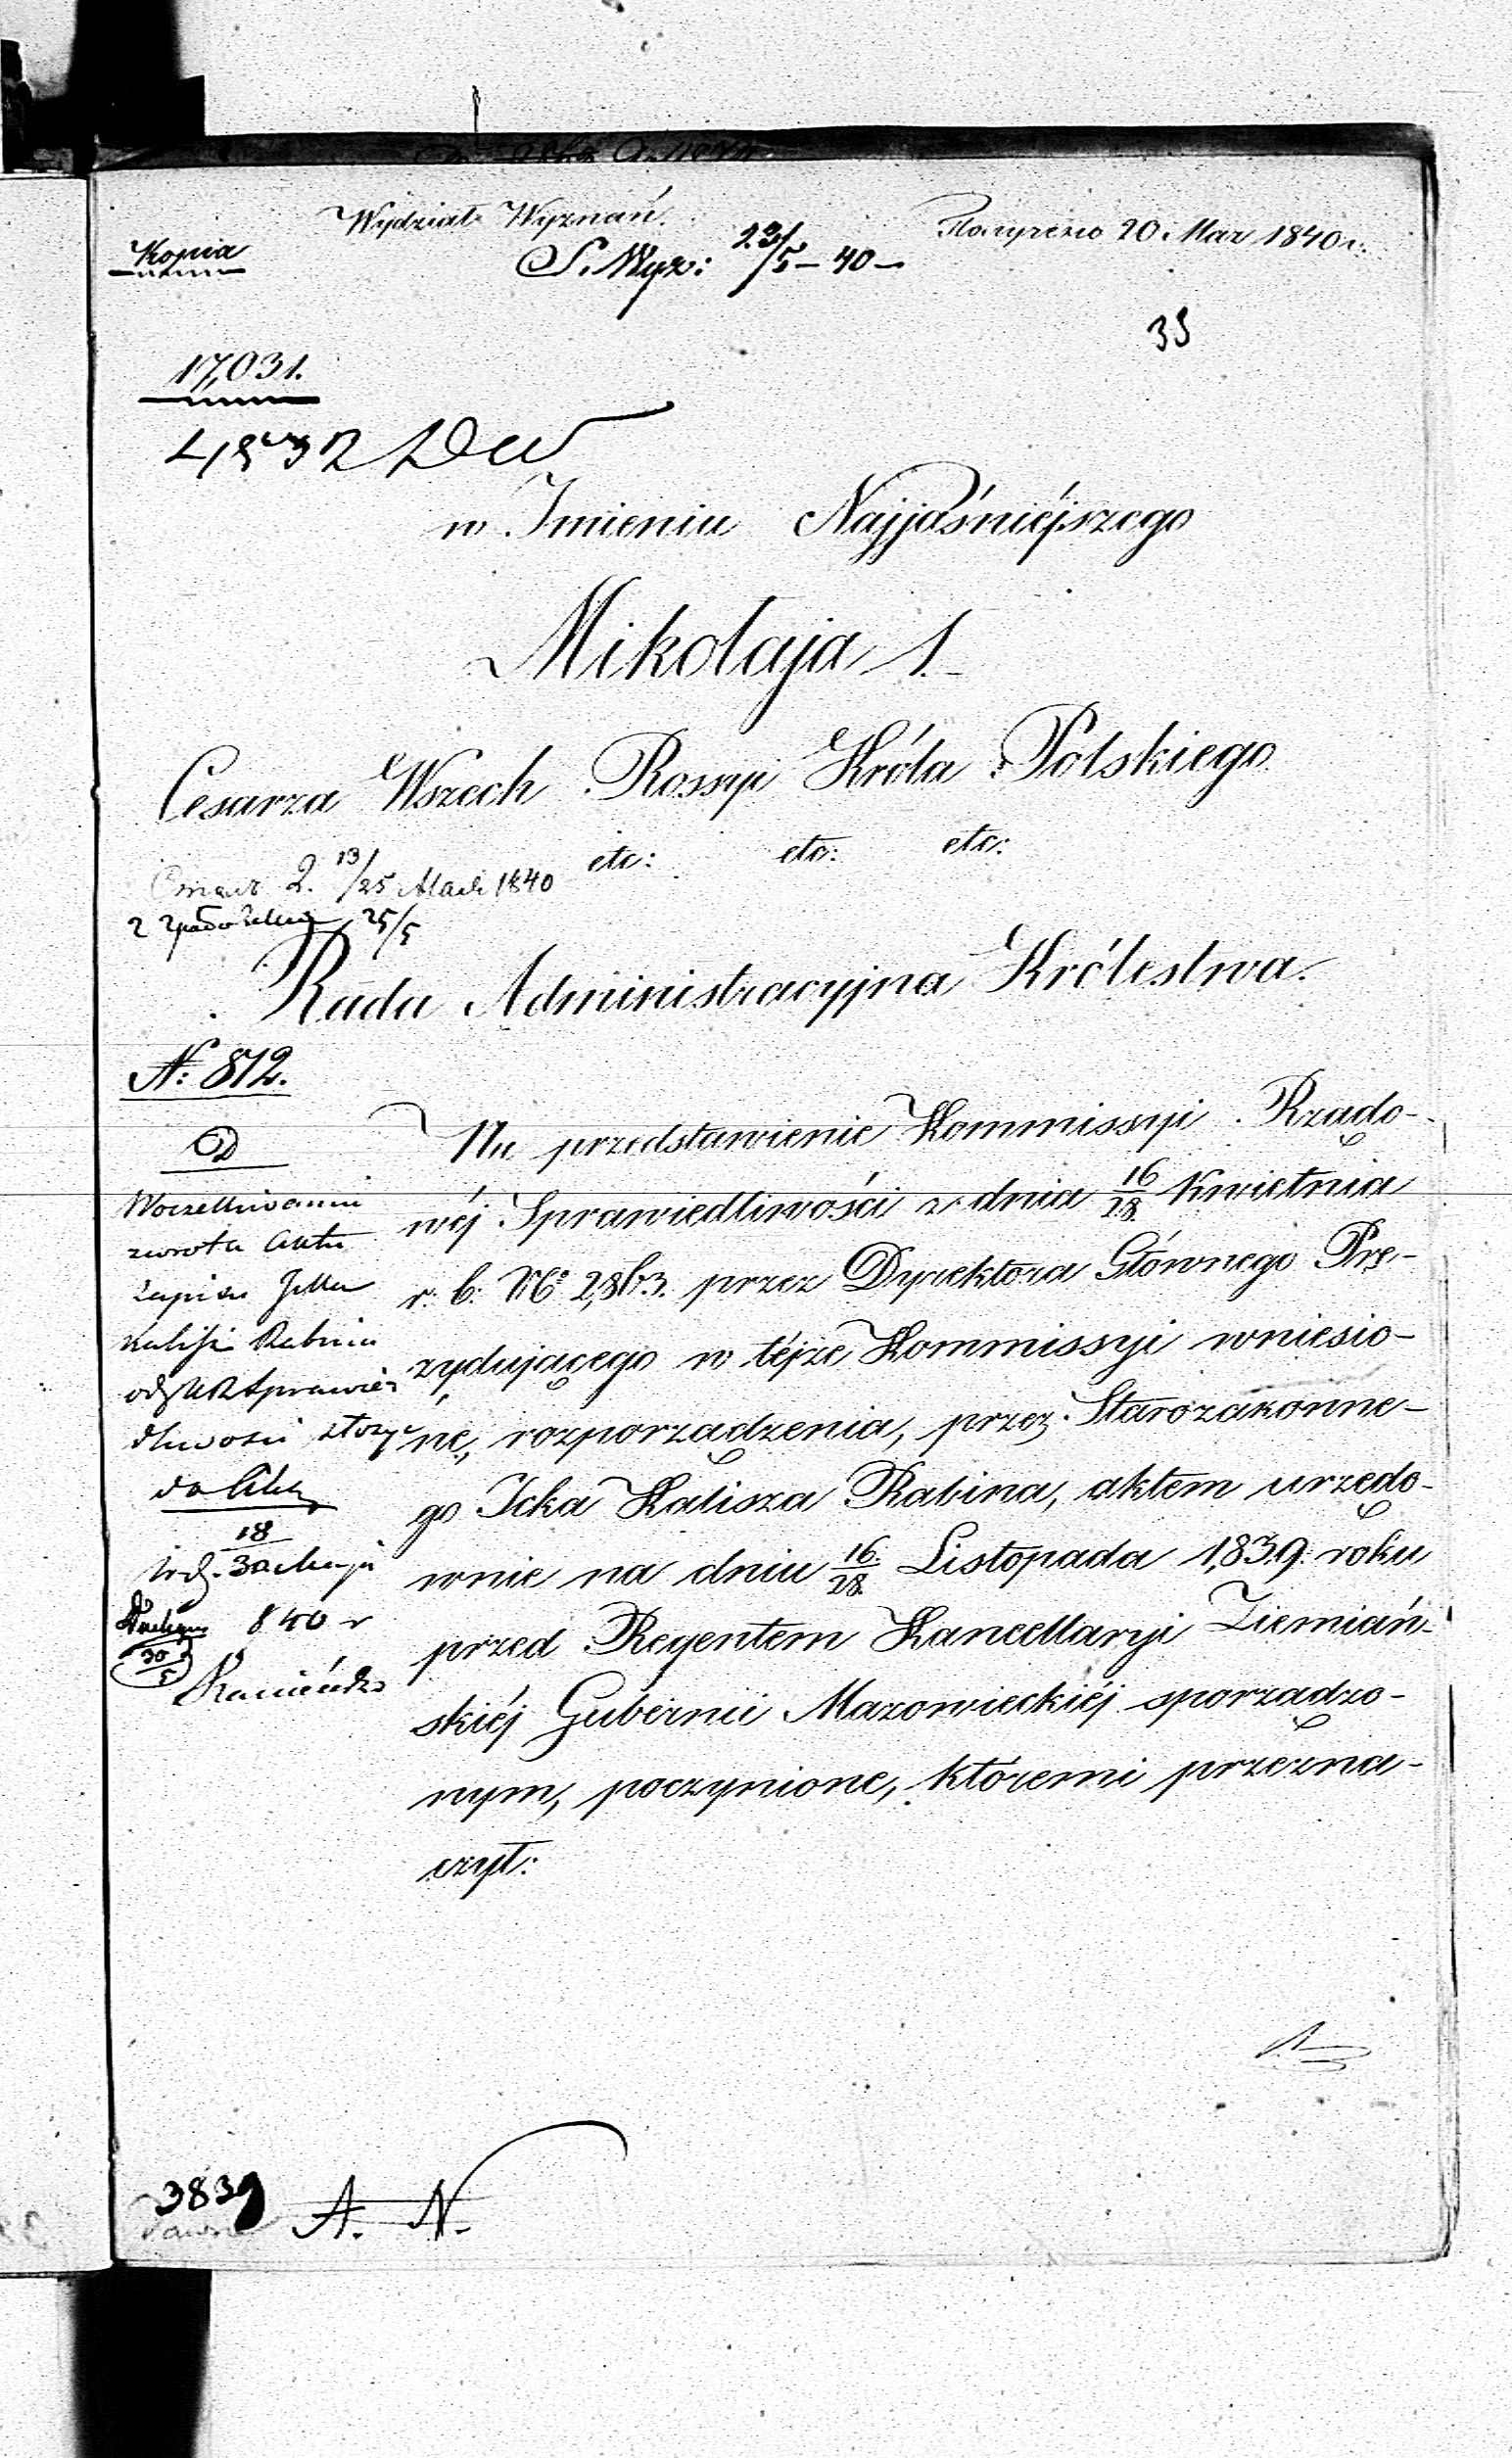 Wydział Wyznań
20 Mar 1840 r.
Kopia
S. Wyz: 23/5 – 40 –
35
17,031.
w Imieniu Najjaśniéjszego
Mikołaja 1.
Cesarza Wszech Rossyi Króla Polskiego
etc: etc: etc:
13/25 1840
25/5
Rada Administracyjna Królestwa.
N: 872.
Na przedstawienie Kommissyi Rządo-
wéj Sprawiedliwości z dnia 16/28 Kwietnia
r: b: No 2,863. przez Dyrektora Głównego Pre-
zydującego w téjże Kommissyi wniesio-
ne, rozporządzenia, przez Starozakonne-
go Icka Kalisza Rabina, aktem urzędo-
wnie na dniu 16/28 Listopada 1,839. roku
przed Regentem Kancellaryi Ziemiań-
skiéj Gubernii Mazowieckiéj sporządzo-
nym, poczynione, któremi przezna-
czył:
W oczekiwaniu
zwrotu aktu
zapisu Icka
Kalisza Rabina
od K R Sprawie
dliwości złożyć
do Akt
18/30 Maja
840 r
30/5
3839
A. N.